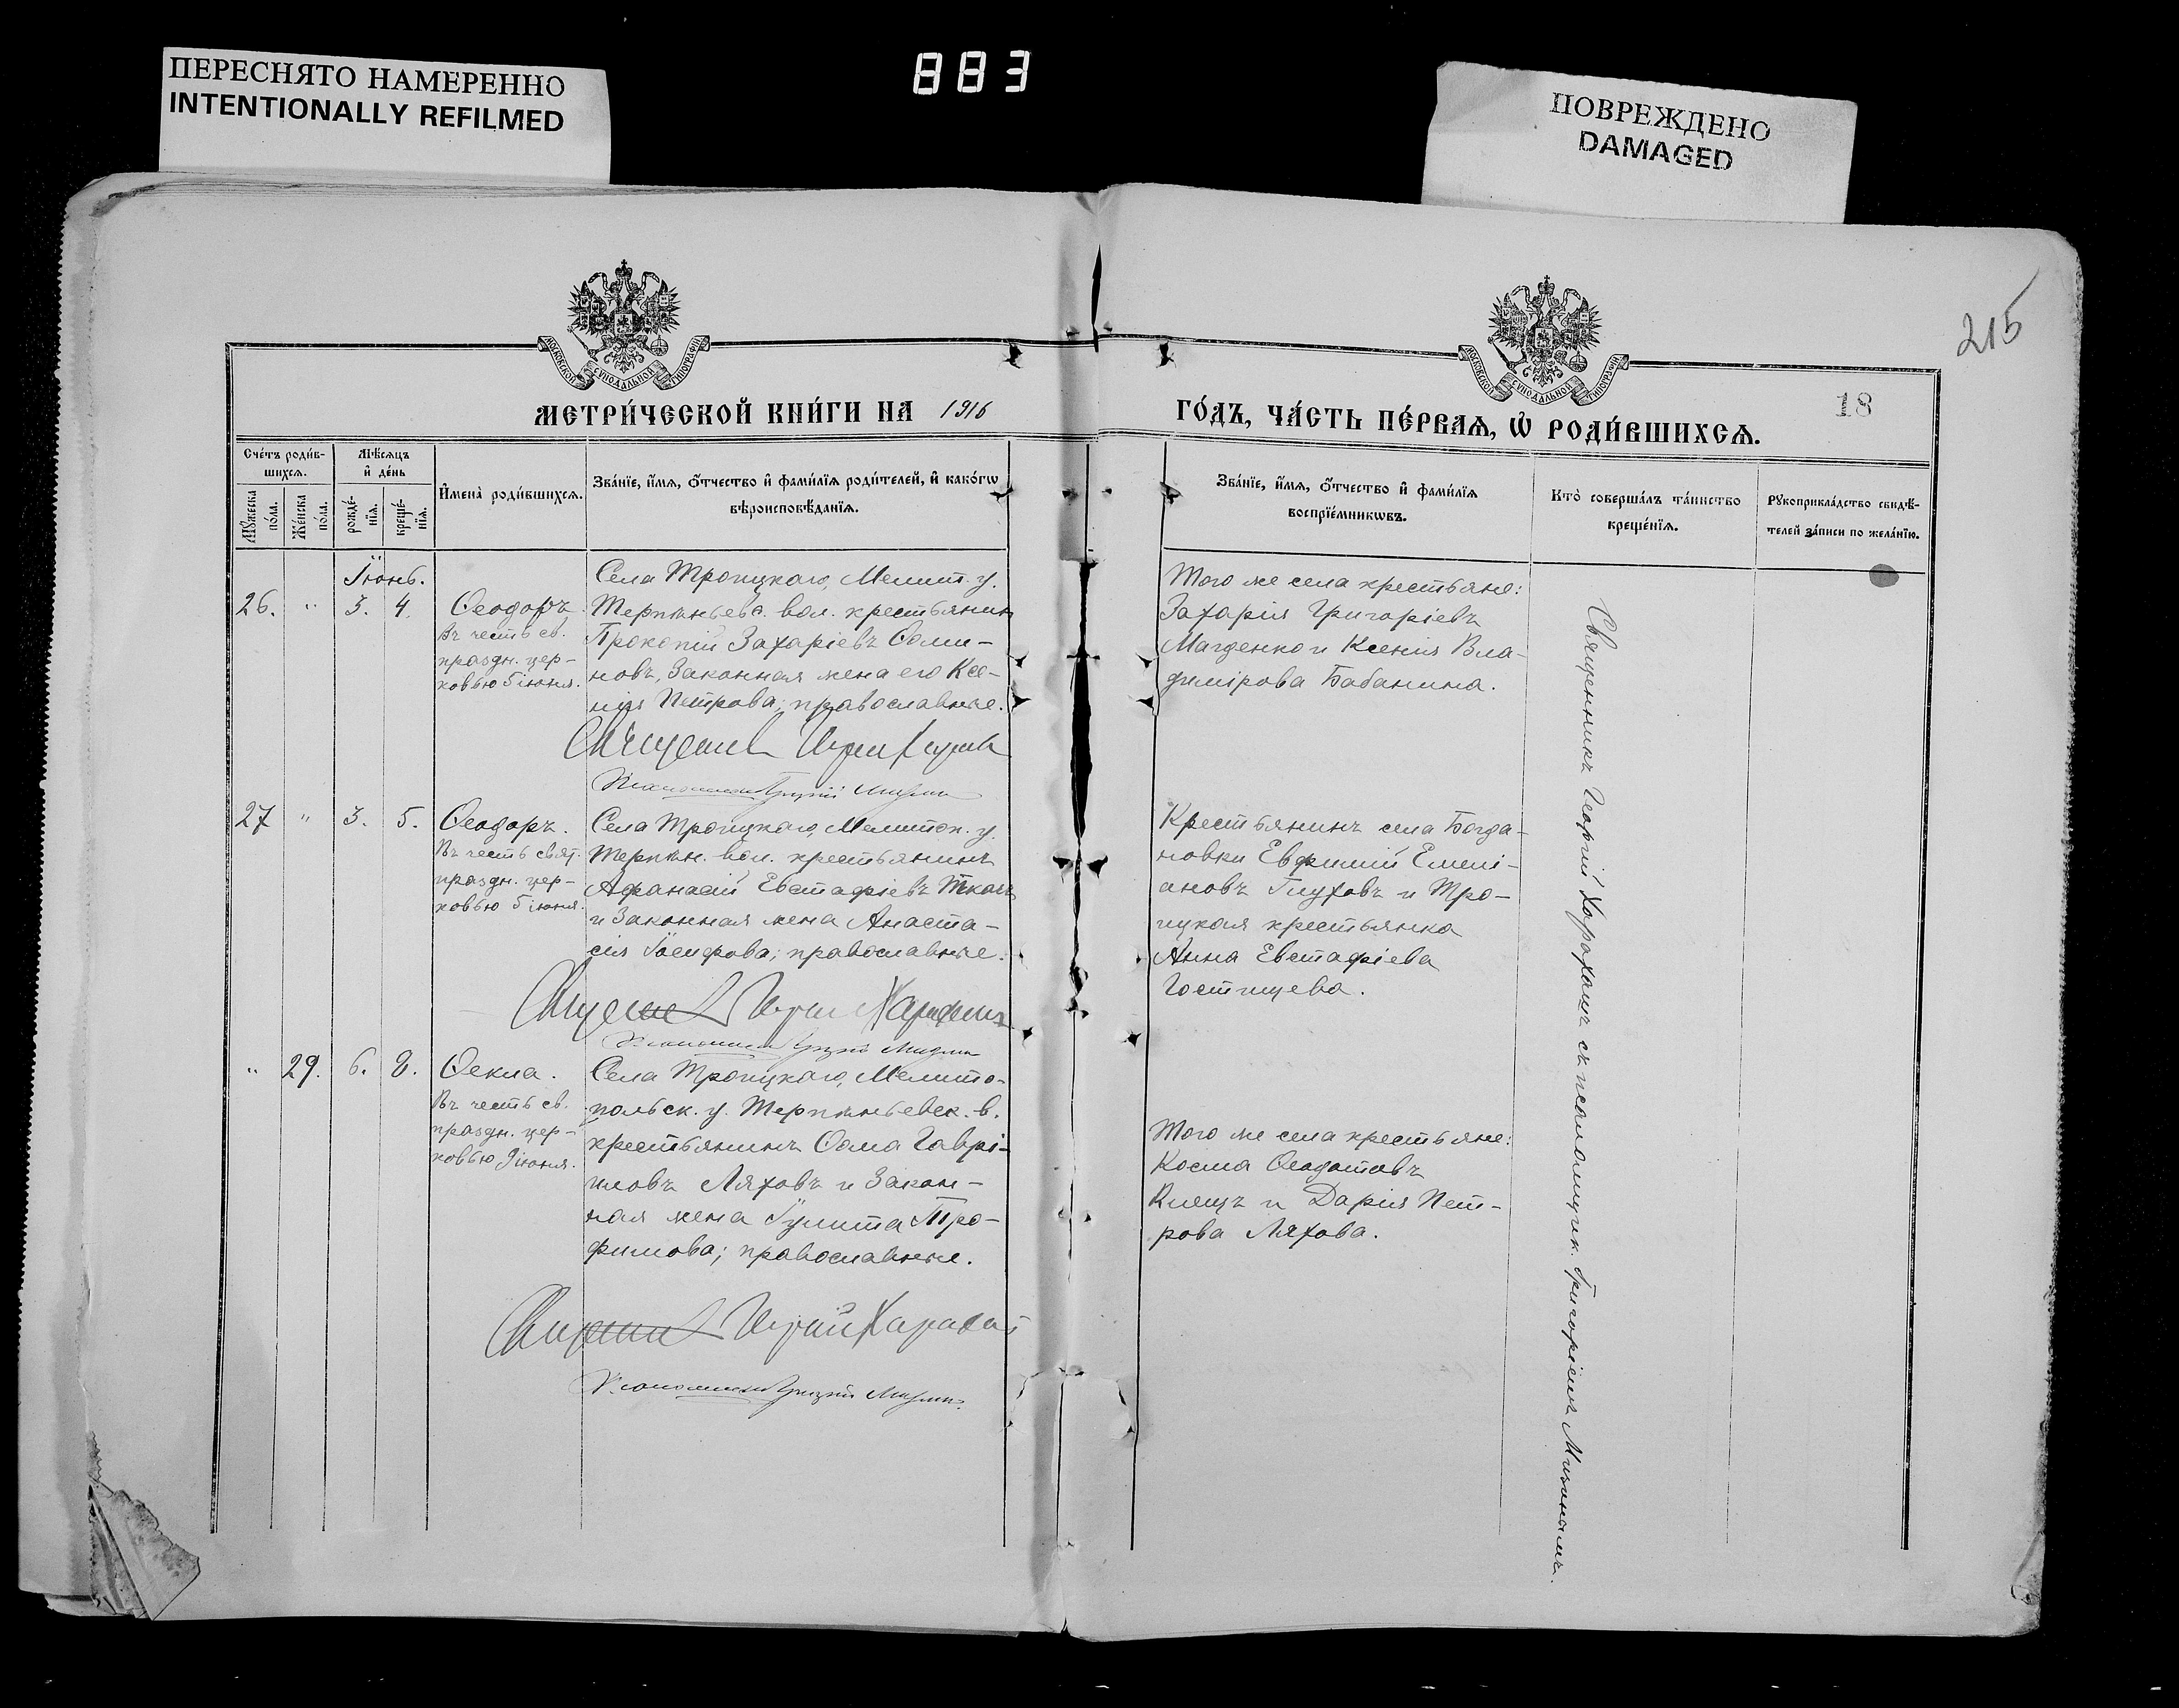 ПЕРЕСНЯТО НАМЕРЕННО
INTENTIONALLY REFILMED
883
ПОВРЕЖДЕНО
DAMAGED
215
МОСКОВСКОЙ СУНОДАЛЬНОЙ ТИПОГРАФІИ
МОСКОВСКОЙ СУНОДАЛЬНОЙ ТИПОГРАФІИ
МЕТРИ́ЧЕСКОЙ КНИ́ГИ НА 1916
ГО́ДЪ, ЧА́СТЬ ПЕ́РВАЯ, Ѡ РОДИ́ВШИХСѦ.
18
Сче́тъ роди́в-
шихсѧ.
Мѣ́сѧцъ
и҆ де́нь
Мꙋ́жеска по́ла.
Же́нска по́ла.
рожде́-
нїѧ.
креще́-
нїѧ.
И҆мена̀ роди́вшихсѧ.
Зва́нїе, и҆́мѧ, ѻ҆́тчество и҆ фами́лїѧ роди́телей, и҆ како́гѡ
вѣроисповѣ́данїѧ.
Зва́нїе, и҆́мѧ, ѻ҆́тчество и҆ фами́лїѧ
воспрїе́мникѡвъ.
Кто̀ соверша́лъ та́инство
креще́нїѧ.
Рꙋкоприкла́дство свидѣ́-
телей за́писи по жела́нїю.
Іюнь.
26. " 3. 4.
Ѳеодоръ
Въ честь св.
праздн. цер-
ковью 5 іюня.
Села Троицкаго, Мелит. у.
Терпѣньев. вол. крестьянин
Прокопій Захаріевъ Ѳоми-
новъ, Законная жена его Ксе-
нія Петрова; православные.
Того же села крестьяне:
Захарія Григоріевъ
Магденко и Ксенія Вла-
димірова Бабанина.
27 " 3. 5.
Ѳеодоръ.
Въ честь свят.
праздн. цер-
ковью 5 іюня.
Села Троицкаго, Мелитоп. у.
Терпѣн. вол. крестьянинъ
Афанасій Евстафіевъ Ткачъ
и Законная жена Анаста-
сія Іосифова; православные.
Крестьянинъ села Богда-
новки Евфимій Емелі-
ановъ Глуховъ и Тро-
ицкая крестьянка
Анна Евстафіева
Гостищева.
" 29. 6. 8.
Ѳекла.
Въ честь св.
праздн. цер-
ковью 9 іюня.
Села Троицкаго, Мелито-
польск. у. Терпѣньевск. в.
крестьянинъ Ѳома Гаврі-
иловъ Ляховъ и Закон-
ная жена Іулита Тро-
фимова; православные.
Того же села крестьяне:
Косма Ѳеодотовъ
Клещъ и Дарія Пет-
рова Ляхова.
Священникъ Георгій Харахашъ съ псаломщик. Григоріемъ